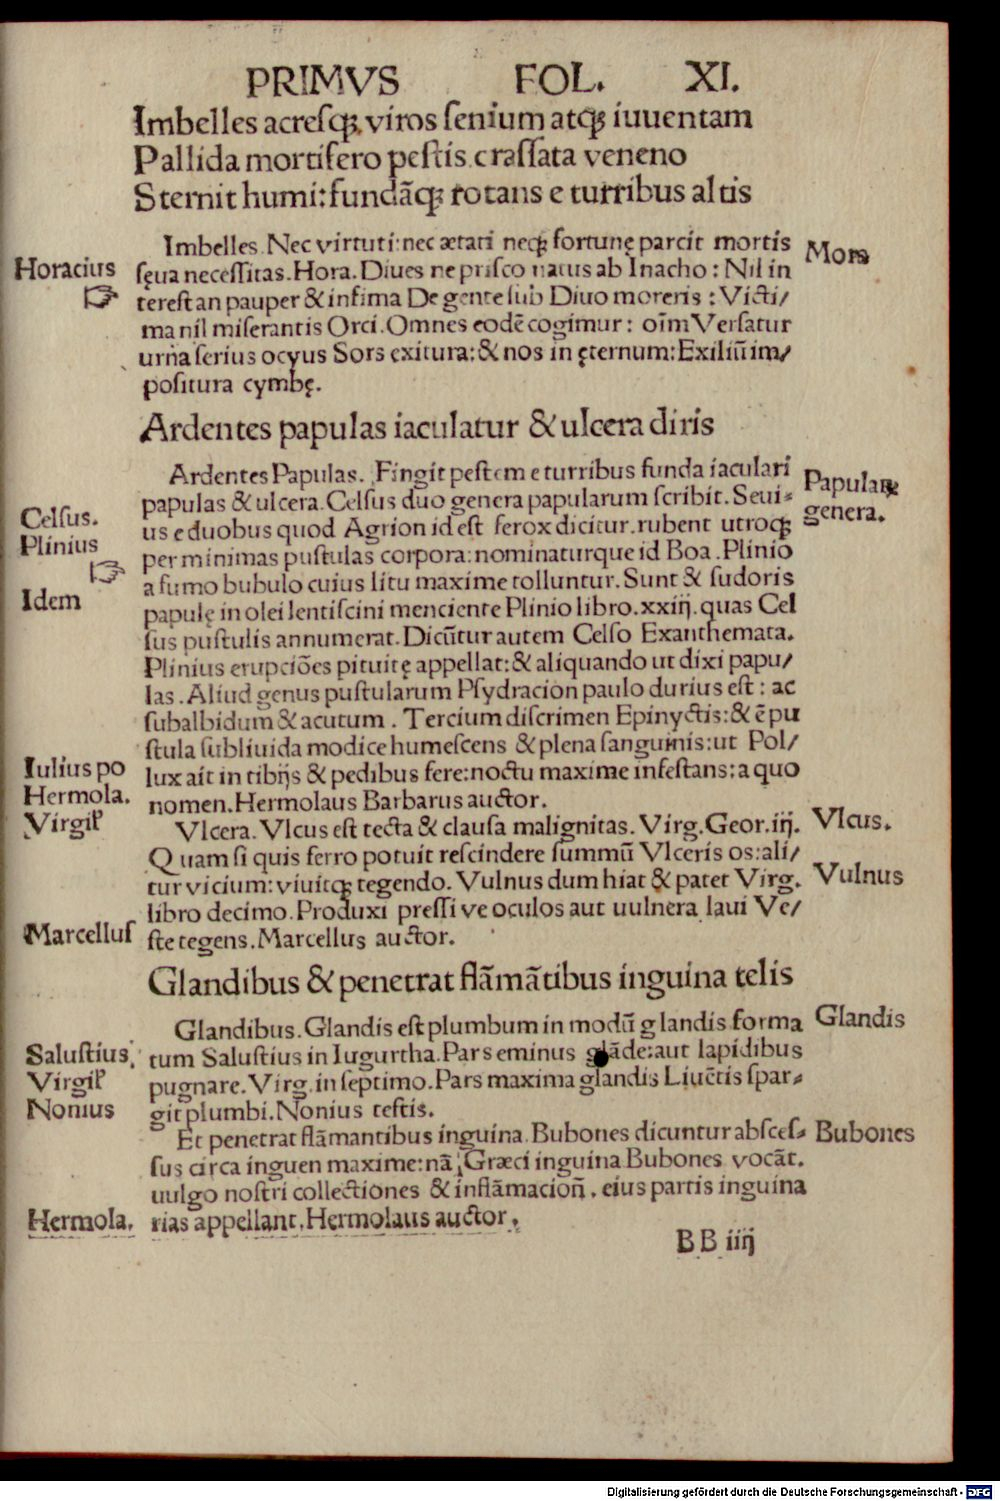 PRIMVS FOL. XI.
Imbelles acreſqꝫ viros ſenium atqꝫ iuuentam
Pallida mortifero peſtis craſſata veneno
Sternit humi: fundãqꝫ rotans e turribus altis
Imbelles. Nec virtuti: nec ætati neqꝫ fortunę parcit mortis
Mors
Horacius
☞
ſęua neceſſitas. Hora. Diues ne priſco natus ab Inacho: Nil in
tereſt an pauper & infima De gente ſub Diuo moreris: Victi/
ma nil miſerantis Orci. Omnes eodẽ cogimur: oĩm Verſatur
urna ſerius ocyus Sors exitura: & nos in ęternum: Exiliũ im/
poſitura cymbę.
Ardentes papulas iaculatur & ulcera diris
Ardentes Papulas. Fingit peſtem e turribus funda iaculari
Papularꝝ
genera.
papulas & ulcera. Celſus duo genera papularum ſcribit. Seui⸗
Celſus.
us e duobus quod Agrion id eſt ferox dicitur. rubent utroqꝫ
Plinius
☞
per minimas puſtulas corpora: nominaturque id Boa. Plinio
a fumo bubulo cuius litu maxime tolluntur. Sunt & ſudoris
Idem
papulę in olei lentiſcini menciente Plinio libro. xxiij. quas Cel
ſus puſtulis annumerat. Dicũtur autem Celſo Exanthemata.
Plinius erupciões pituitę appellat: & aliquando ut dixi papu/
las. Aliud genus puſtularum Pſydracion paulo durius eſt: ac
ſubalbidum & acutum. Tercium diſcrimen Epinyctis: & ẽ pu
ſtula ſubliuida modice humeſcens & plena ſanguinis: ut Pol/
Iulius po
lux ait in tibijs & pedibus fere: noctu maxime infeſtans: a quo
Hermola.
nomen. Hermolaus Barbarus auctor.
Virgiłˀ
Vlcera. Vlcus eſt tecta & clauſa malignitas. Virg. Geor. iij.
Vlcus.
Quam ſi quis ferro potuit reſcindere ſummũ Vlceris os: ali/
tur vicium: viuitqꝫ tegendo. Vulnus dum hiat & patet Virg.
Vulnus
libro decimo. Produxi preſſi ve oculos aut uulnera laui Ve/
Marcellus
ſte tegens. Marcellus auctor.
Glandibus & penetrat flãmãtibus inguina telis
Glandibus. Glandis eſt plumbum in modũ glandis forma
Glandis
Saluſtius.
tum Saluſtius in Iugurtha. Pars eminus glãde: aut lapidibus
Virgiłˀ
pugnare. Virg. in ſeptimo. Pars maxima glandis Liuẽtis ſpar⸗
Nonius
git plumbi. Nonius teſtis.
Et penetrat flãmantibus inguina. Bubones dicuntur abſceſ⸗
Bubones
ſus circa inguen maxime: nã Græci inguina Bubones vocãt.
uulgo noſtri collectiones & inflãmacioñ. eius partis inguina
Hermola.
rias appellant. Hermolaus auctor.
BB iiij
Digitalisierung gefördert durch die Deutsche Forschungsgemeinschaft - DFG